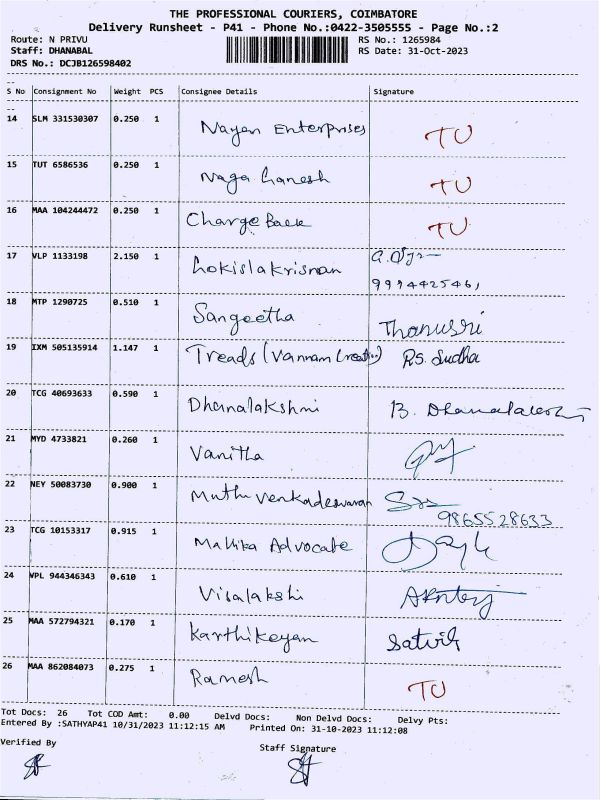 THE PROFESSIONAL COURIERS, COIMBATORE
Delivery Runsheet - P41 - Phone No.:0422-3505555 - Page No.:2
Route: N PRIVU RS No.: 1265984
Staff: DHANABAL RS Date: 31-Oct-2023
DRS No.: DCJB126598402
S No Consignment No Weight PCS Consignee Details Signature
14 SLM 331530307 0.250 1 Nayan Enterprises TU
15 TUT 6586536 0.250 1 Naga Ganesh TU
16 MAA 104244472 0.250 1 Charge Back TU
17 VLP 1133198 2.150 1 Lokislakrisnan
18 MTP 1290725 0.510 1 Sangeetha Thanusri
19 IXM 505135914 1.147 1 Treads (Vannam Creation) RS. Sudha
20 TCG 40693633 0.590 1 Dhanalakshmi B. Dhanalakshmi
21 MYD 4733821 0.260 1 Vanitha
22 NEY 50083730 0.900 1 Muthu Venkadeswaran
9865528633
23 TCG 10153317 0.915 1 Mallika Advocate
24 VPL 944346343 0.610 1 Visalakshi
25 MAA 572794321 0.170 1 Karthikeyan
26 MAA 862084073 0.275 1 Ramesh TU
Tot Docs: 26 Tot COD Amt: 0.00 Delvd Docs: Non Delvd Docs: Delvy Pts:
Entered By :SATHYAP41 10/31/2023 11:12:15 AM Printed On: 31-10-2023 11:12:08
Verified By Staff Signature